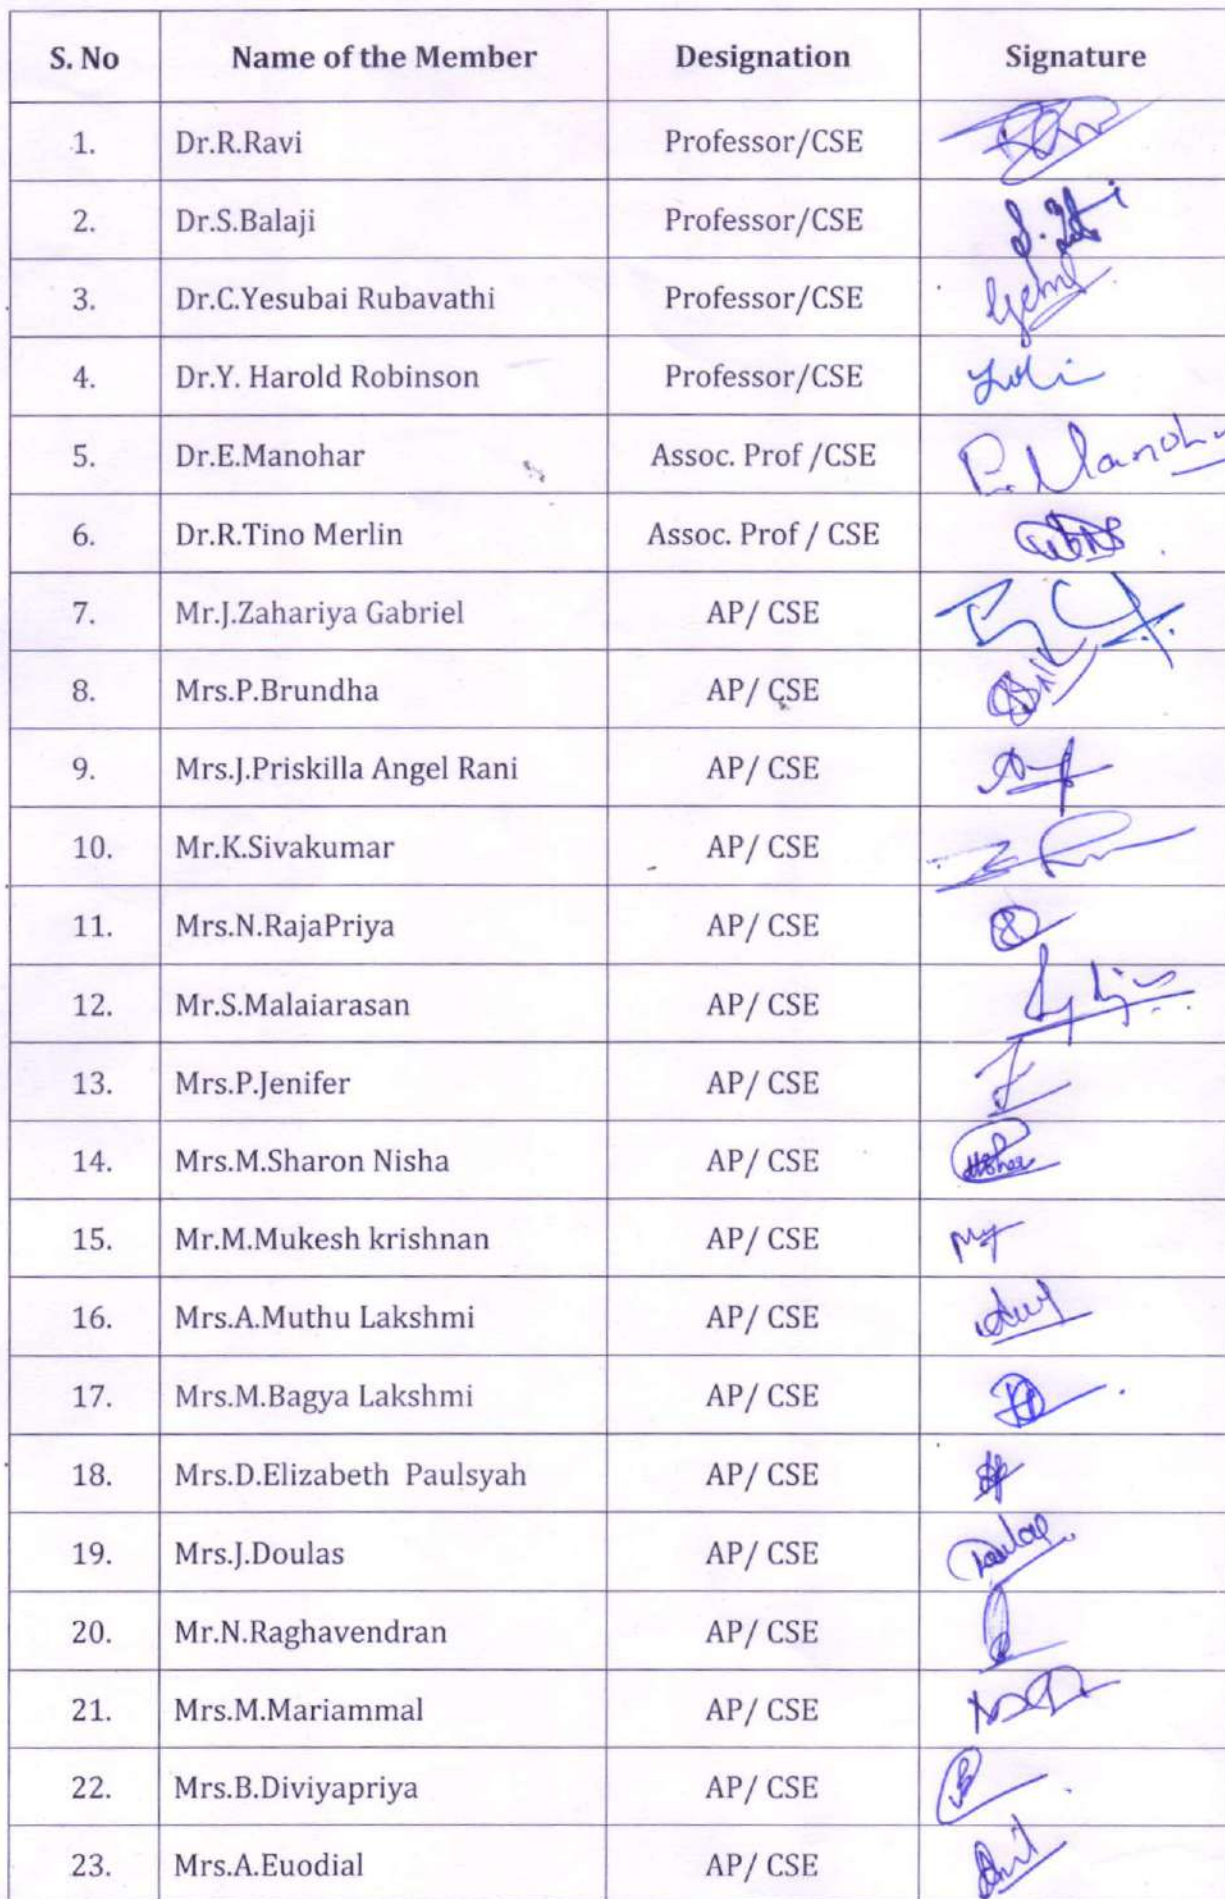 S. No Name of the Member Designation Signature
1. Dr.R.Ravi Professor/CSE
2. Dr.S.Balaji Professor/CSE
3. Dr.C.Yesubai Rubavathi Professor/CSE
4. Dr.Y. Harold Robinson Professor/CSE
5. Dr.E.Manohar Assoc. Prof /CSE
6. Dr.R.Tino Merlin Assoc. Prof / CSE
7. Mr.J.Zahariya Gabriel AP/ CSE
8. Mrs.P.Brundha AP/ CSE
9. Mrs.J.Priskilla Angel Rani AP/ CSE
10. Mr.K.Sivakumar AP/ CSE
11. Mrs.N.RajaPriya AP/ CSE
12. Mr.S.Malaiarasan AP/ CSE
13. Mrs.P.Jenifer AP/ CSE
14. Mrs.M.Sharon Nisha AP/ CSE
15. Mr.M.Mukesh krishnan AP/ CSE
16. Mrs.A.Muthu Lakshmi AP/ CSE
17. Mrs.M.Bagya Lakshmi AP/ CSE
18. Mrs.D.Elizabeth Paulsyah AP/ CSE
19. Mrs.J.Doulas AP/ CSE
20. Mr.N.Raghavendran AP/ CSE
21. Mrs.M.Mariammal AP/ CSE
22. Mrs.B.Diviyapriya AP/ CSE
23. Mrs.A.Euodial AP/ CSE